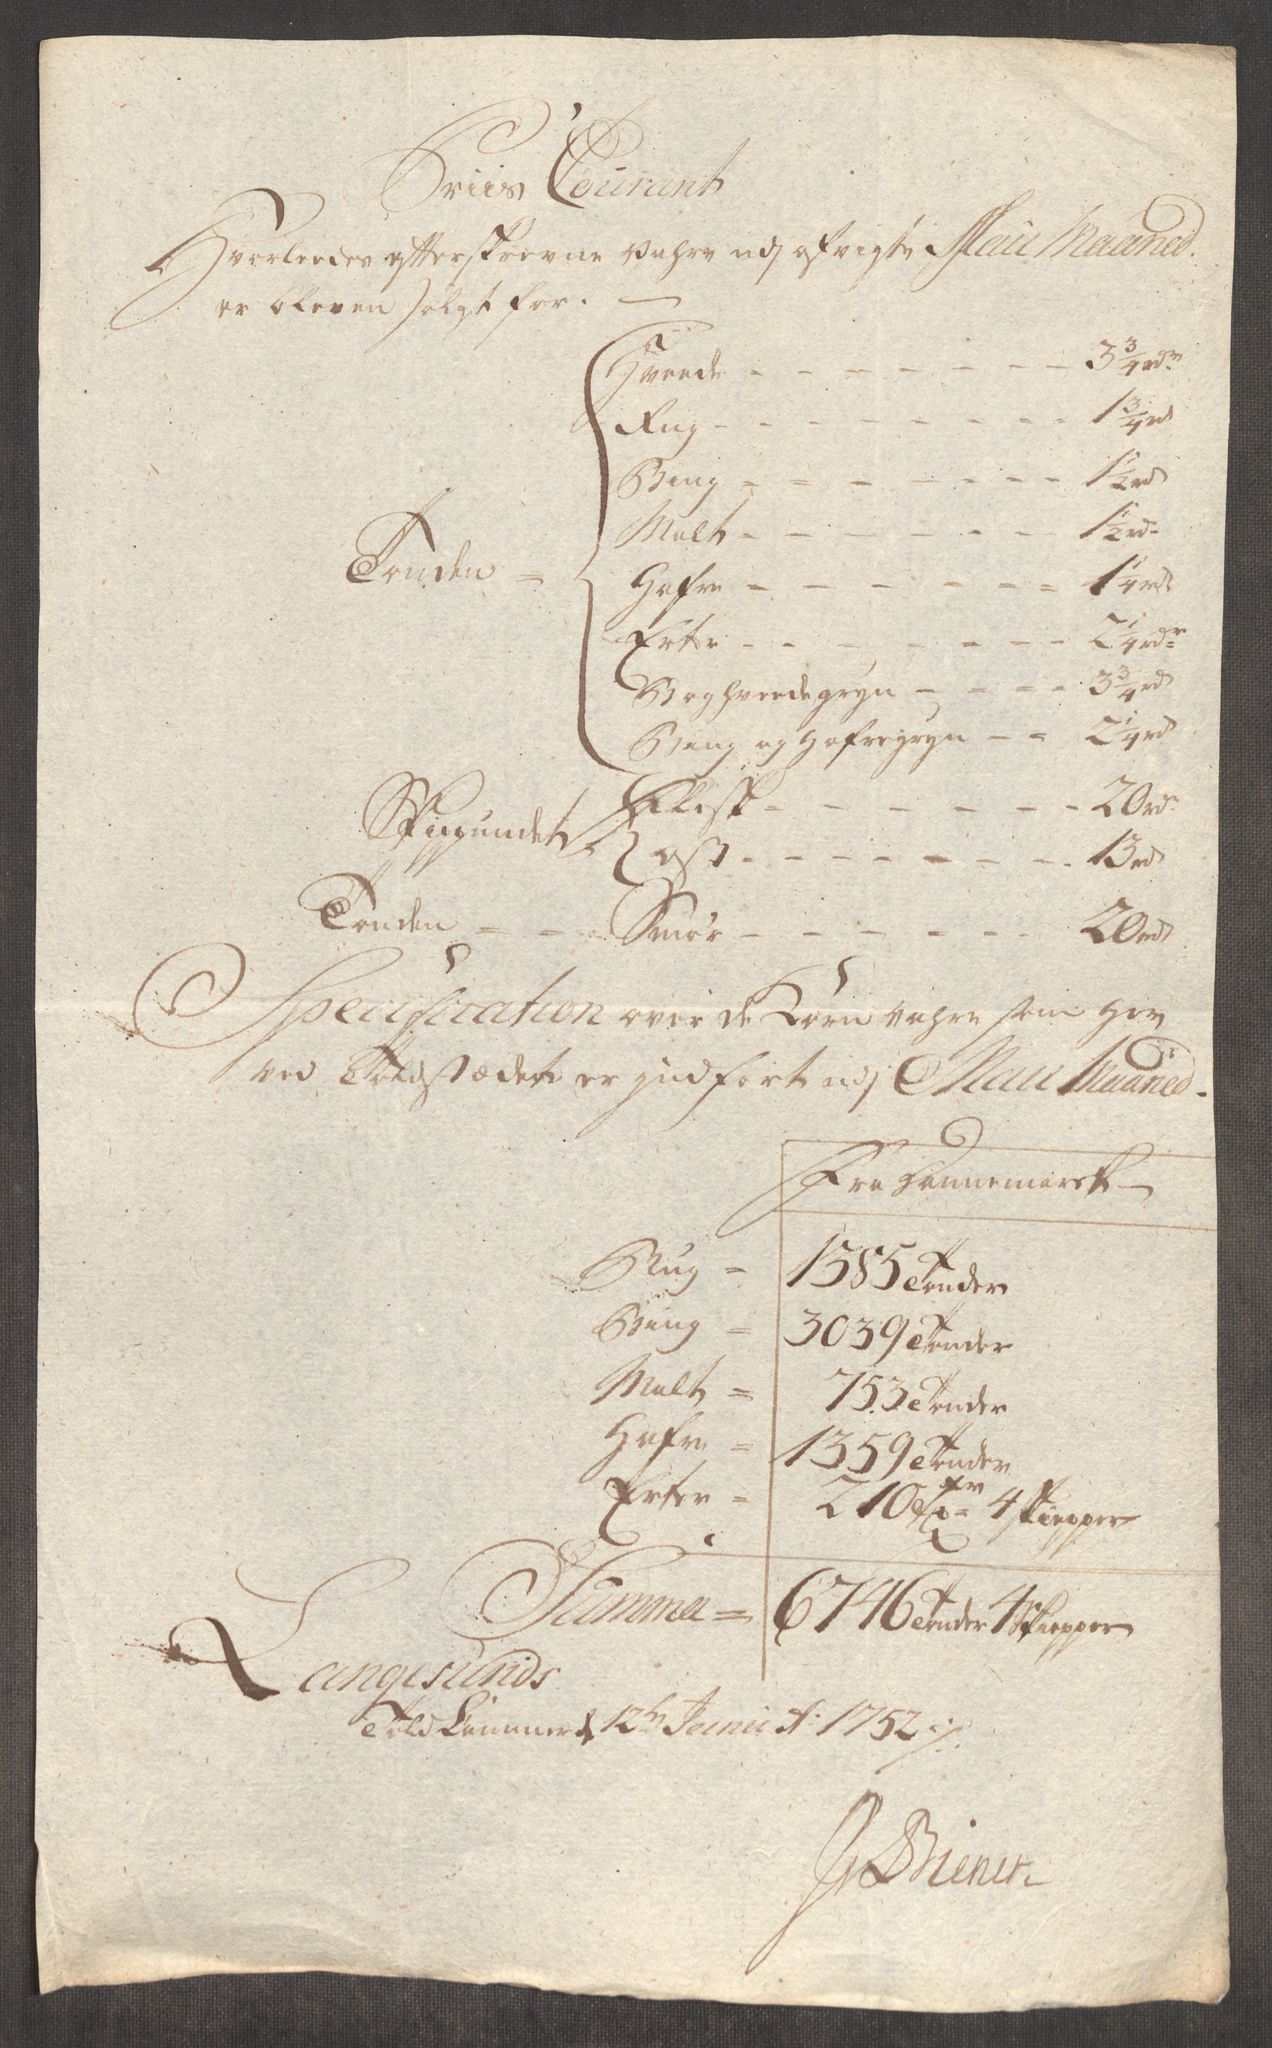 Priis Courant
Hvorleedes efterskrevne vahre udj afvigte Maii Maaned.
er bleven solgt for.
Hveede - - - - - - - - 3 3/4 rdr
Rug - - - - - - - - 1 3/4 rd
Biug - - - - - - - 1 1/2 rd
Malt - - - - - - - 1 1/2 rd
Tønden = Hafre - - - - - - - 1 1/4 rd
Erter - - - - - - - 2 1/4 rdr
Boghveedegryn - - - - 3 3/4 rd
Biug og Hafregryn - - 2 1/4 rd
Skippundet Flesk - - - - - - - 20 rd
ost - - - - - - - 13 rd
Tønden - - - Smør - - - - - - 20 rd
Specification over de Korn vahre som her
ved Toldstædet er indført udj Maii Maaned.
Fra Dannemarck
Rug = 1385 Tønder
Biug = 3039 Tønder
Malt = 753 Tønder
Hafre = 1359 Tønder
Erter = 210 Tr 4 Skiepper
Summa = 6746 Tønder 4 Skiepper
Langesunds
Told Kammer d 12te Junii Ao 1752
Biener